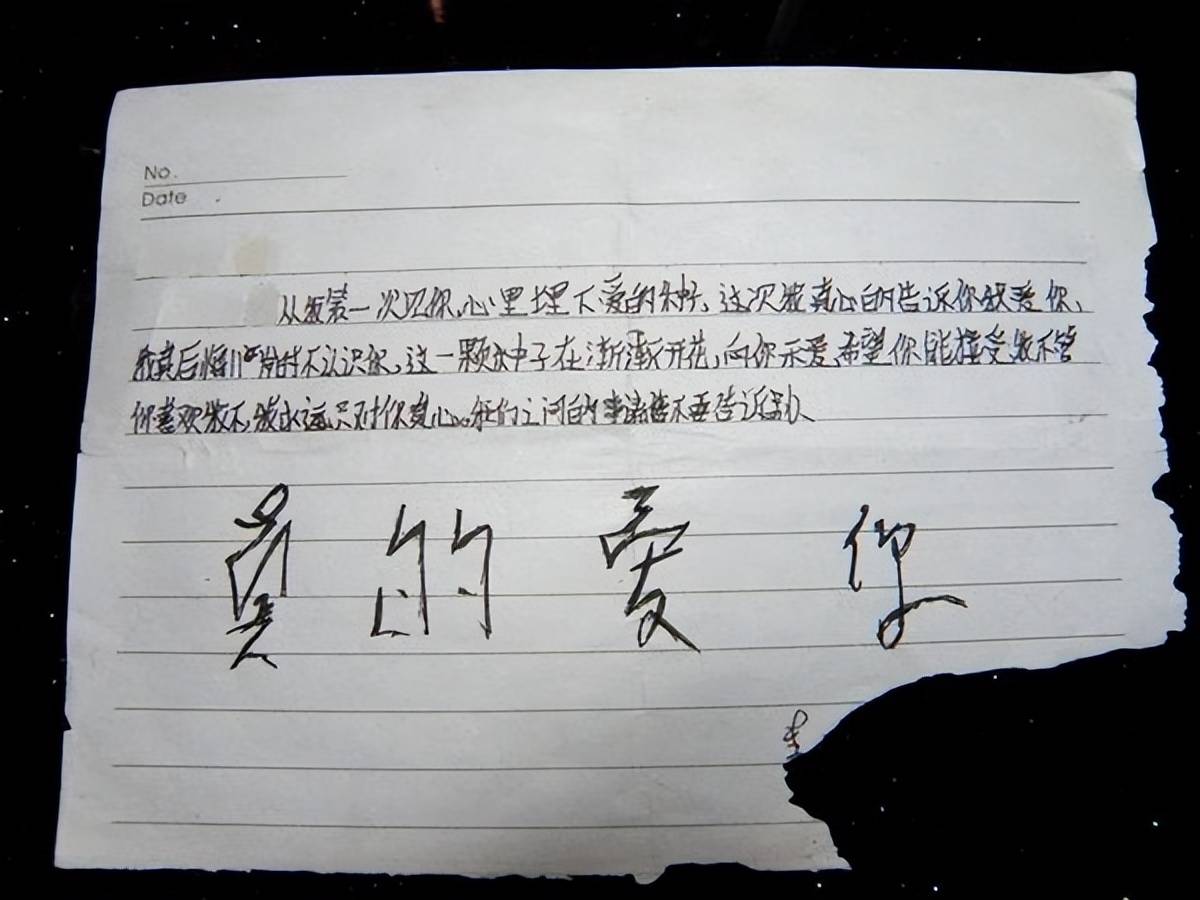 No.
Date
从我第一次见你,心里埋下爱的种子、这次我真心的告诉你我爱你、
我真后悔小的时不认识你,这一颗种子在渐渐开花,向你示爱,希望你能接受我不管
你喜欢我不,我永远只对你真心。我们之间的事请不要告诉别人、
真的爱你